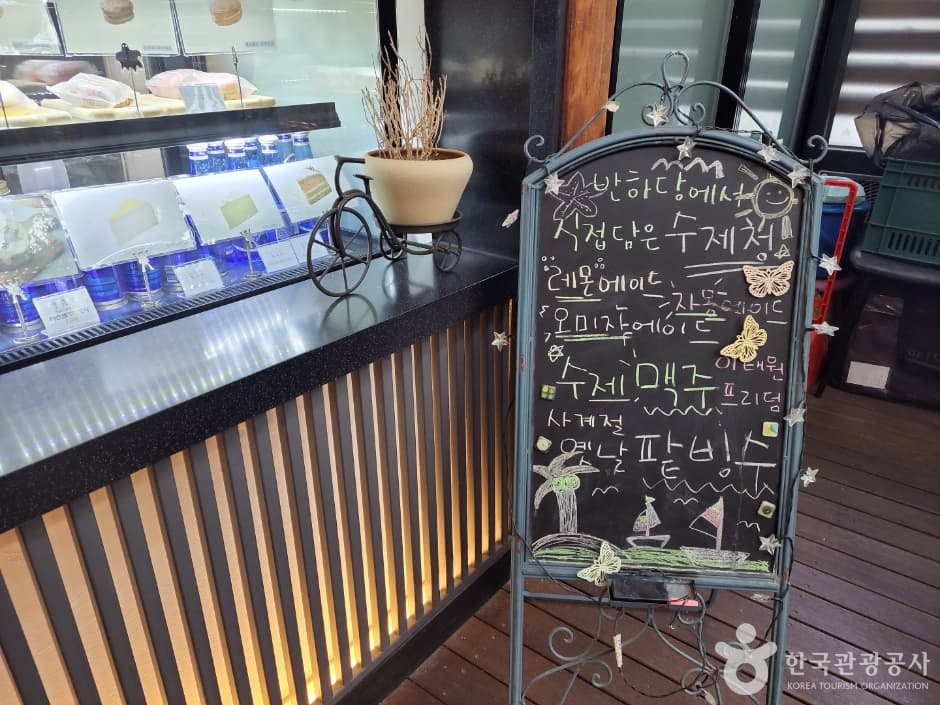 반하당에서
직접담은 수제청
레몬에이드
오미자에이드 자몽에이드
수제 맥주 이태원 프리덤
사계절
옛날 팥빙수
한국관광공사
KOREA TOURISM ORGANIZATION